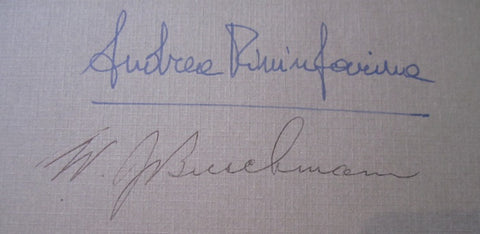 Andrea Pininfarina
W. J. Bruckmann